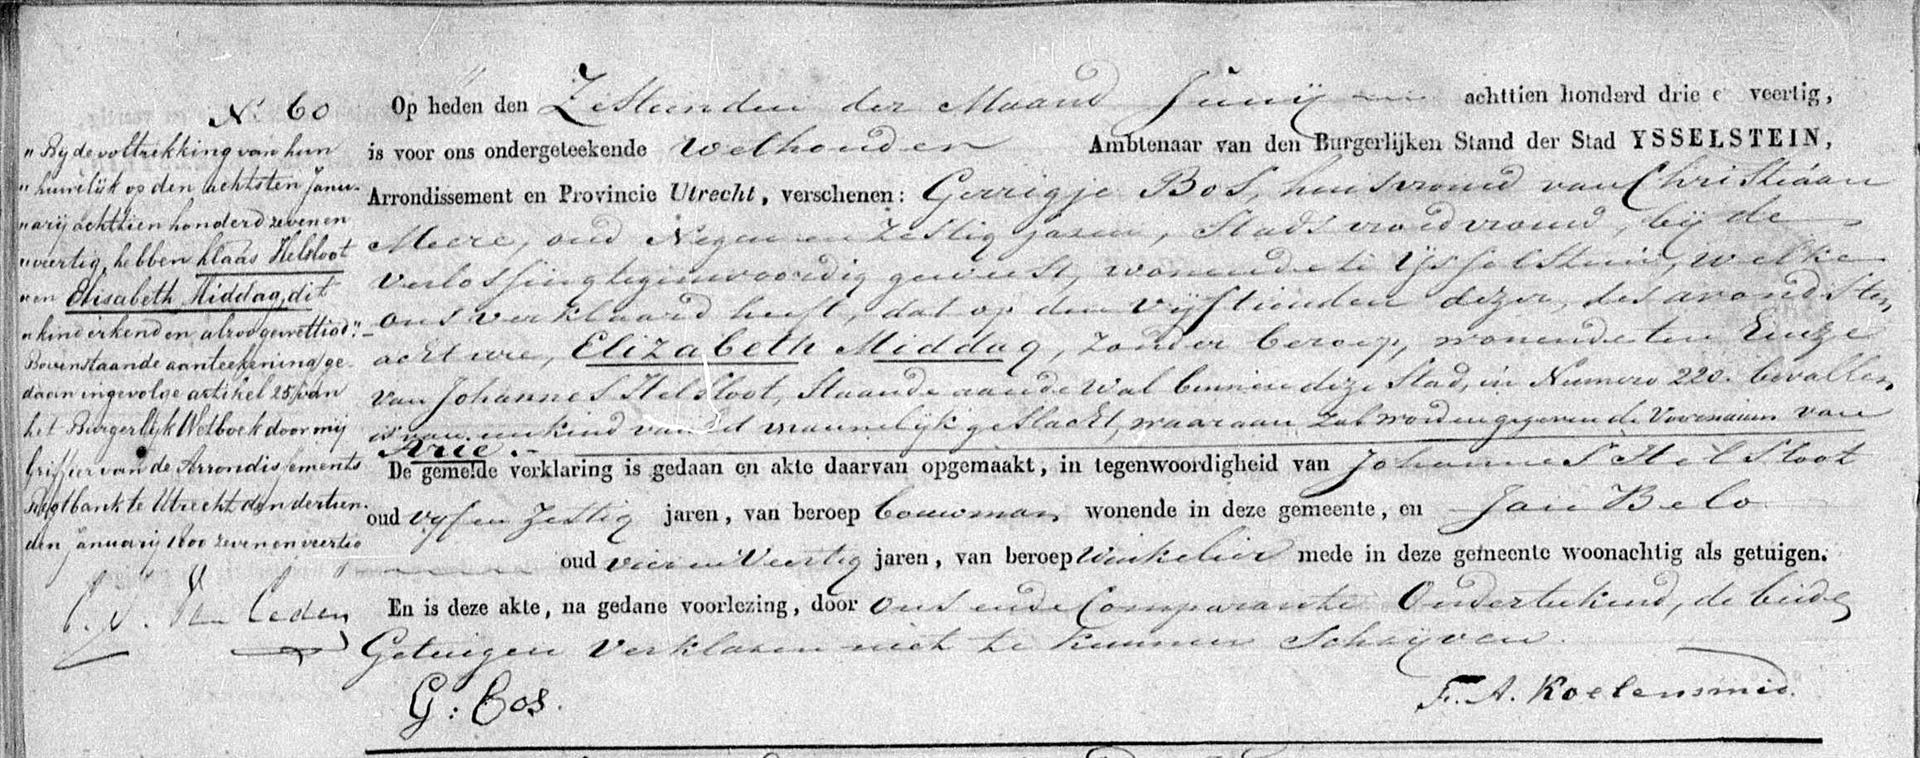 Nº 60
"By de voltrekking van hun
"huwelijk op den achtsten Janu-
"arij achttien honderd zeven en
"veertig, hebben Klaas Helsloot
"en Elisabeth Middag, dit
"kind erkend en alzoo gewettigd."
Bovenstaande aanteekening ge-
daan ingevolge artikel 25 van
het Burgerlijk Wetboek door mij
Griffier van de Arrondissements
Regtbank te Utrecht den dertien-
den Januarij 1800 zeven en veertig
Op heden den Zestienden der Maand Junij achttien honderd drie e veertig,
is voor ons ondergeteekende Wethouder Ambtenaar van den Burgerlijken Stand der Stad YSSELSTEIN,
Arrondissement en Provincie Utrecht, verschenen: Gerrigje Bos, huisvrouw van Christiaan
Meere, oud Negen en Zestig jaren, Stads vroedvrouw, bij de
verlossing tegenwoordig geweest, wonende te IJsselstein, welke
ons verklaard heeft, dat op den Vijftienden dezer, des avonds ten
acht ure, Elizabeth Middag, zonder beroep, wonende ten huize
van Johannes Helsloot, staande aan de Wal binnen deze Stad, in Numero 220. bevallen
is van een kind van het mannelijk geslacht, waaraan zal worden gegeven de Voornaam van
Arie.
De gemelde verklaring is gedaan en akte daarvan opgemaakt, in tegenwoordigheid van Johannes Helsloot
oud vyf en zestig jaren, van beroep bouwman, wonende in deze gemeente, en Jan Belo
oud vier en Veertig jaren, van beroep Winkelier mede in deze gemeente woonachtig als getuigen.
En is deze akte, na gedane voorlezing, door ons en de Comparante Onderteekend, de beide
Getuigen verklaren niet te kunnen Schrijven.
G: Bos. F. A. Koelensmid.